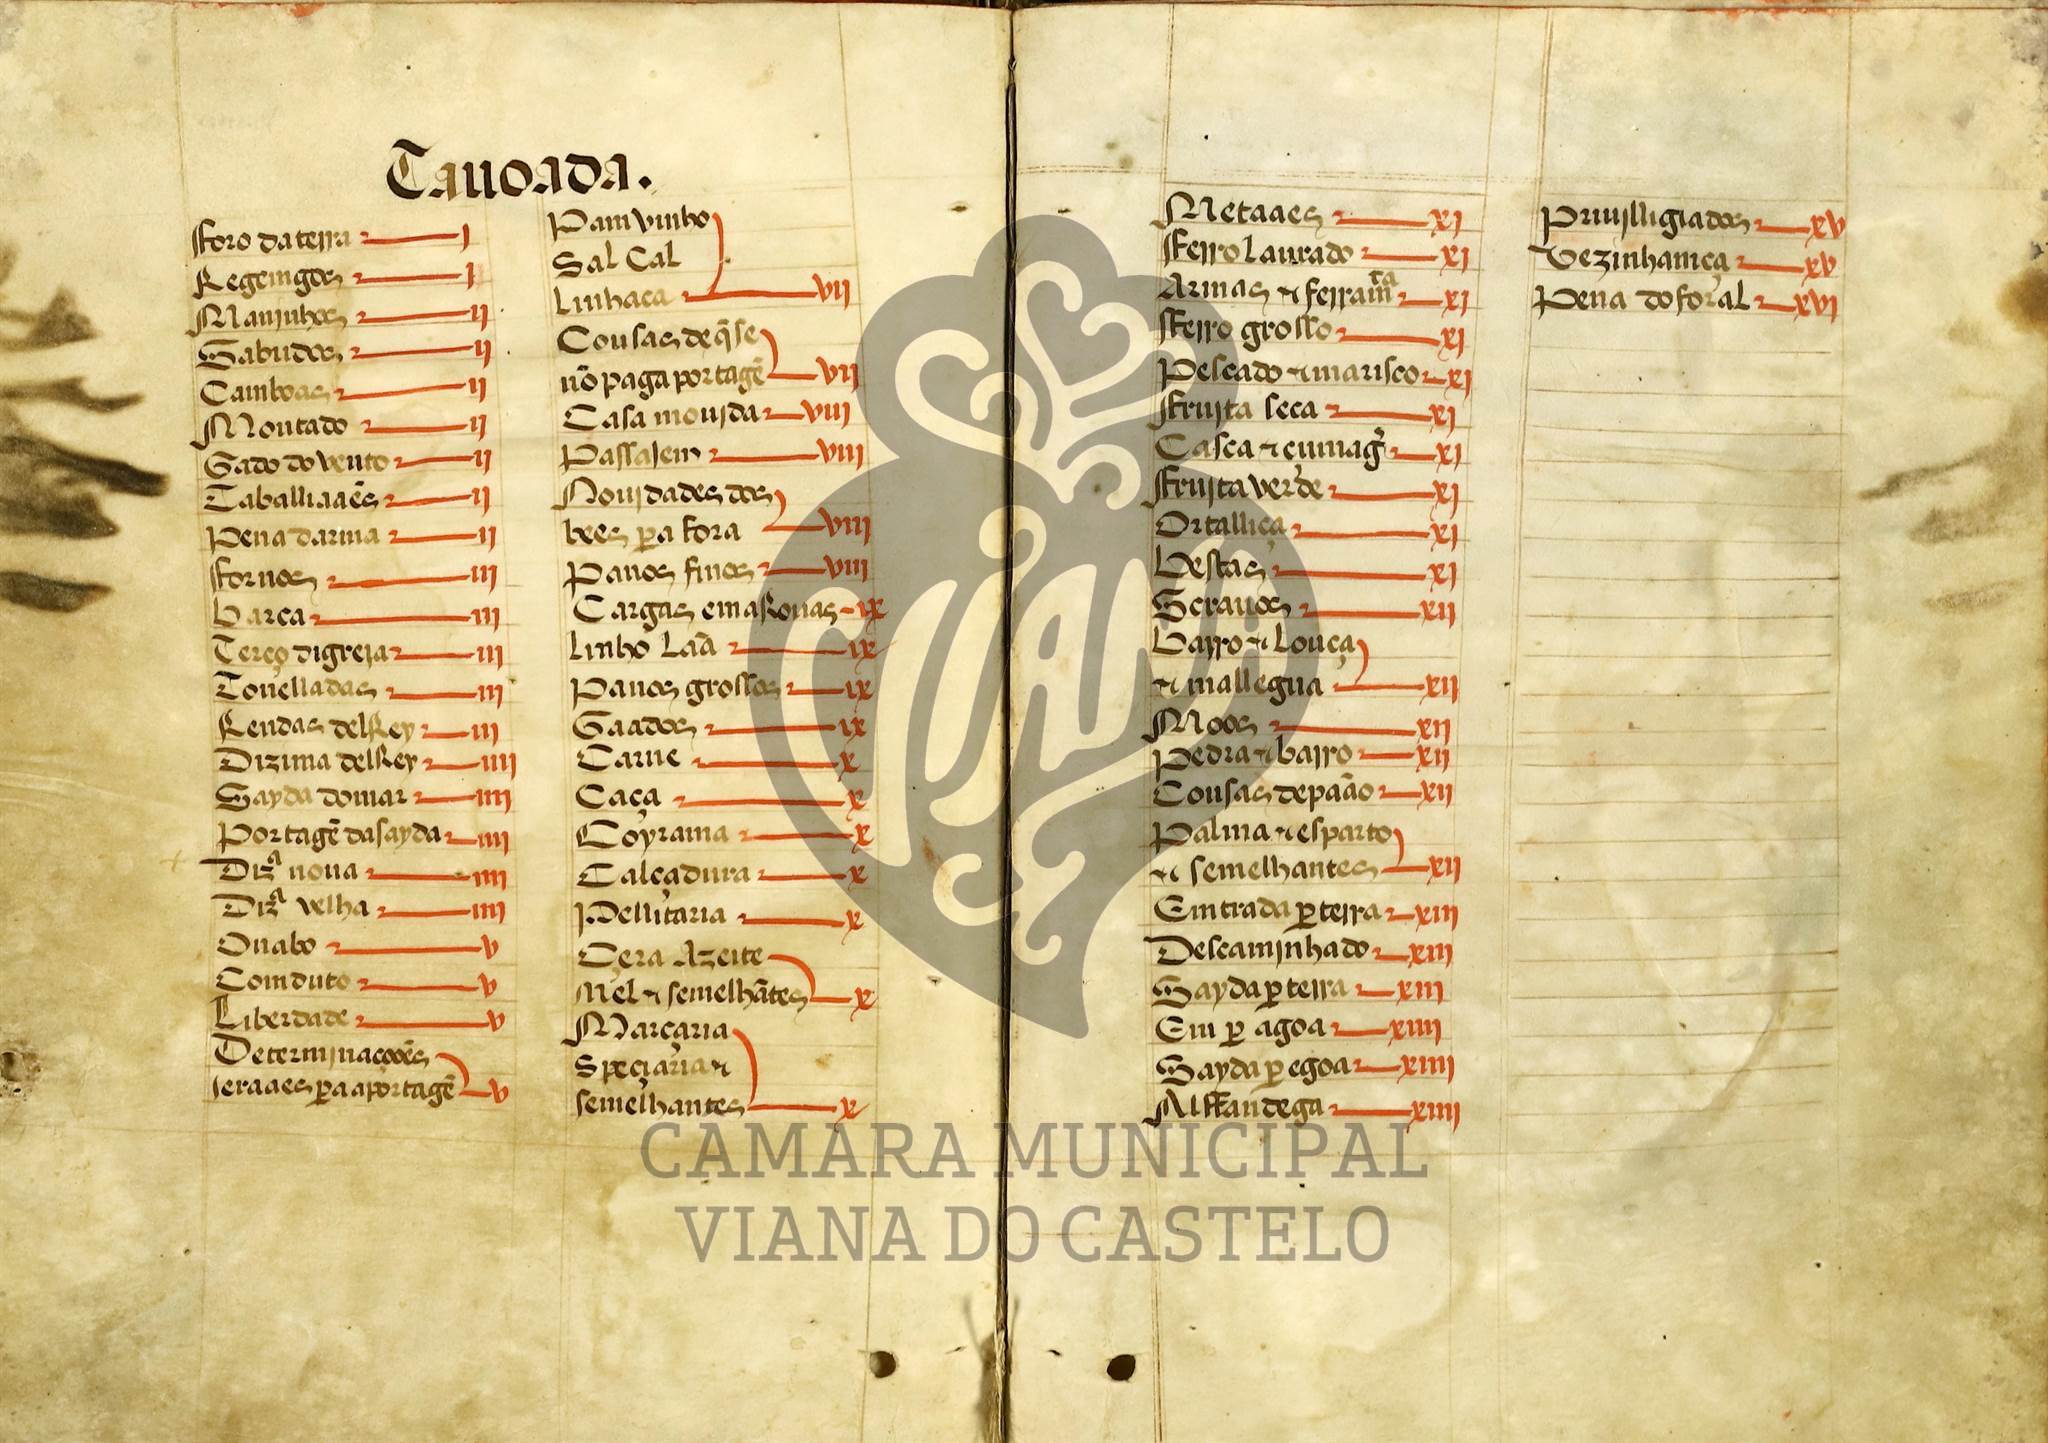 Tauoada.
fforo da terra j
Regeingos j
Maninhos ij
Gabudos ij
Camboas ij
Montado ij
Gado do vento ij
Taballiaães ij
Pena darma ij
ffornos iij
barca iij
Terço digreja iij
Tonelladas iij
Rendas delRey iij
Dizima delRey iiij
Sayda do mar iiij
Portagẽ da sayda iiij
Dizª noua iiij
Dizª velha iiij
Onabo v
Comduto v
Liberdade v
Determinaçoões
jeraaes pera a portagẽ v
Pam vinho
Sal Cal
linhaça vij
Cousas de q̃ se
nõ paga portagẽ vij
Casa mouida viij
Passajem viij
Nouidades dos
bẽes pera fora viij
Panos finos viij
Cargas em aRouas ix
linho Laã ix
Panos grossos ix
Gaados ix
Carne x
Caça x
Coyrama x
Calçadura x
Pellitaria x
Cera Azeite
Mel & semelhãtes x
Marçaria
Speçiaria &
semelhantes x
Metaaes xj
fferro laurado xj
Armas & ferramᵗᵃ xj
fferro grosso xj
Pescado & marisco xj
ffruita seca xj
Casca & çumagr̃ xj
ffruita verde xj
Ortalliça xj
bestas xj
Scrauos xij
barro & Louça
& mallegua xij
Moos xij
Pedra & barro xij
Cousas de paão xij
Palma & esparto
& semelhantes xij
Emtrada per terra xiij
Descaminhado xiij
Sayda per terra xiij
Em per agoa xiiij
Sayda per egoa xiiij
Alffandega xiiij
Priuilligiados xv
Vezinhamça xv
Pena do foral xvj
VIANA
CAMARA MUNICIPAL
VIANA DO CASTELO